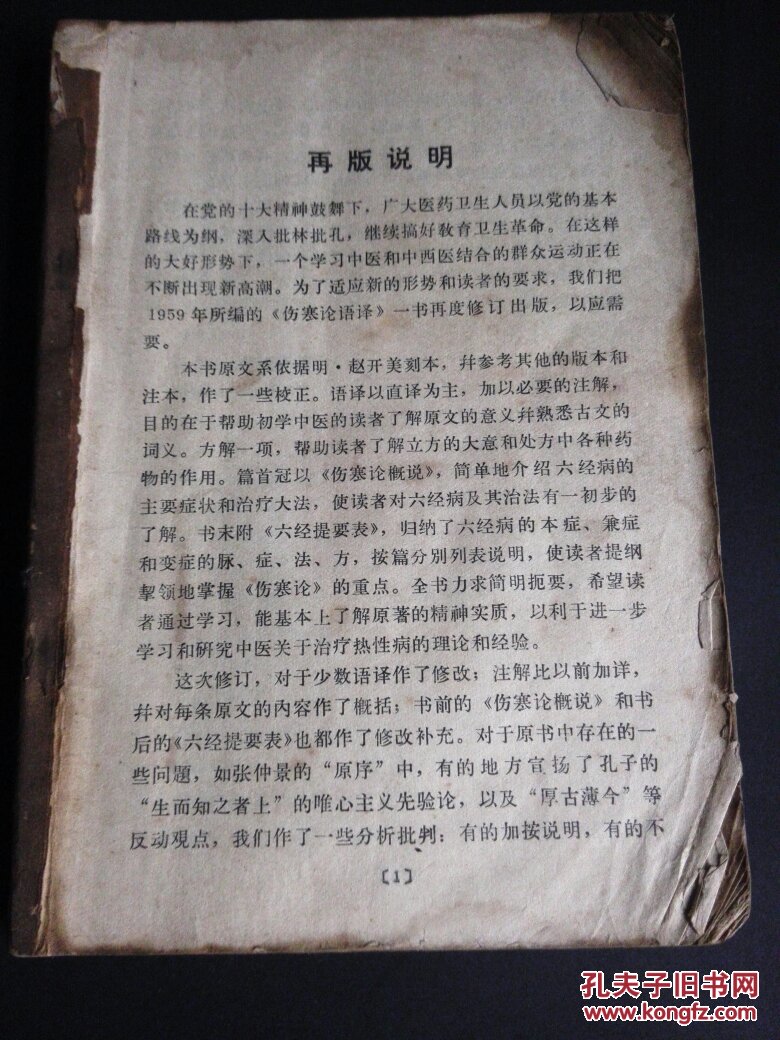 再版说明
在党的十大精神鼓舞下，广大医药卫生人员以党的基本
路线为纲，深入批林批孔，继续搞好教育卫生革命。在这样
的大好形势下，一个学习中医和中西医结合的群众运动正在
不断出现新高潮。为了适应新的形势和读者的要求，我们把
1959年所编的《伤寒论语译》一书再度修订出版，以应需
要。
本书原文系依据明·赵开美刻本，幷参考其他的版本和
注本，作了一些校正。语译以直译为主，加以必要的注解，
目的在于帮助初学中医的读者了解原文的意义幷熟悉古文的
词义。方解一项，帮助读者了解立方的大意和处方中各种药
物的作用。篇首冠以《伤寒论概说》，简单地介绍六经病的
主要症状和治疗大法，使读者对六经病及其治法有一初步的
了解。书末附《六经提要表》，归纳了六经病的本症、兼症
和变症的脉、症、法、方，按篇分别列表说明，使读者提纲
挈领地掌握《伤寒论》的重点。全书力求简明扼要，希望读
者通过学习，能基本上了解原著的精神实质，以利于进一步
学习和研究中医关于治疗热性病的理论和经验。
这次修订，对于少数语译作了修改；注解比以前加详，
幷对每条原文的内容作了概括；书前的《伤寒论概说》和书
后的《六经提要表》也都作了修改补充。对于原书中存在的一
些问题，如张仲景的“原序”中，有的地方宣扬了孔子的
“生而知之者上”的唯心主义先验论，以及“厚古薄今”等
反动观点，我们作了一些分析批判：有的加按说明，有的不
〔1〕
孔夫子旧书网
www.kongfz.com